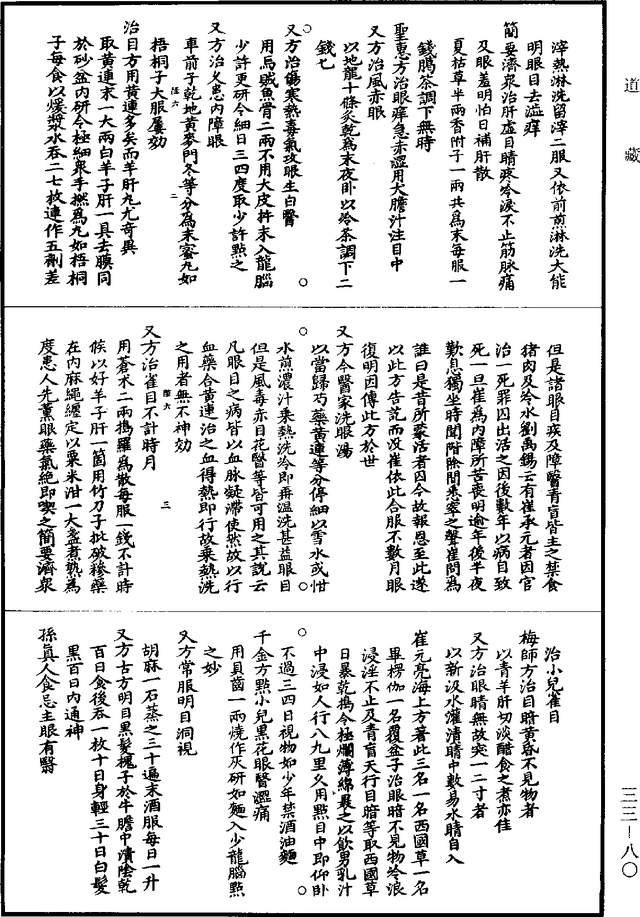 道藏
滓熱淋洗留滓二服又依前煎淋洗大能
明眼目去澁痒
簡要濟衆治肝虛目睛疼冷淚不止筋脉痛
及眼羞明怕日補肝散
夏枯草半兩香附子一兩共爲末每服一
錢臈茶調下無時
聖惠方治眼痒急赤澀用犬膽汁注目中
又方治風赤眼
以地龍十條炙乾爲末夜卧以冷茶調下二
錢匕
又方治傷寒熱毒氣攻眼生白瞖
用烏賊魚骨二兩不用大皮杵末入龍腦
少許更研令細日三四度取少許點之
又方治久患內障眼
車前子乾地黃麥門冬等分爲末蜜丸如
梧桐子大服屢効
治目方用黃連多矣而羊肝丸尤奇異
取黃連末一大兩白羊子肝一具去膜同
於砂盆內研令極細衆手撚爲丸如梧桐
子每食以煖漿水吞二七枚連作五劑差
但是諸眼目疾及障瞖青盲皆主之禁食
猪肉及冷水劉禹錫云有崔承元者因官
治一死罪囚出活之因後數年以病自致
死一旦崔爲內障所苦喪明逾年後半夜
歎息獨坐時聞階除間悉窣之聲崔問爲
誰曰是昔所蒙活者囚今故報恩至此遂
以此方告訖而没崔依此合服不數月眼
復明因傳此方於世
又方今醫家洗眼湯
以當歸芍藥黃連等分停細以雪水或甜
水煎濃汁乘熱洗冷即再溫洗甚益眼目
但是風毒赤目花瞖等皆可用之其說云
凡眼目之病皆以血脉凝滯使然故以行
血藥合黃連治之血得熱即行故乘熱洗
之用者無不神効
三
又方治雀目不計時月
用蒼术二兩擣羅爲散每服一錢不計時
候以好羊子肝一箇用竹刀子批破糝藥
在內麻繩纏定以粟米泔一大盞煮熟爲
度患人先薰眼藥氣絶即喫之簡要濟衆
治小兒雀目
梅師方治目暗黃昏不見物者
以青羊肝切淡醋食之煮亦佳
又方治眼睛無故突一二寸者
以新汲水灌漬睛中數易水睛自入
崔元亮海上方著此三名一名西國草一名
畢楞伽一名覆盆子治眼暗不見物冷淚
浸淫不止及青盲天行目暗等取西國草
日暴乾搗令極爛薄綿裹之以飲男乳汁
中浸如人行八九里久用點目中即仰卧
不過三四日視物如少年禁酒油麵
千金方點小兒黑花眼瞖澀痛
用貝齒一兩燒作灰研如麵入少龍腦點
之妙
又方常服明目洞視
胡麻一石蒸之三十遍末酒服每日一升
又方古方明目黑髮槐子於牛膽中漬陰乾
百日食後吞一枚十日身輕三十日白髮
黑百日內通神
孫真人食忌主眼有瞖
三三—八〇